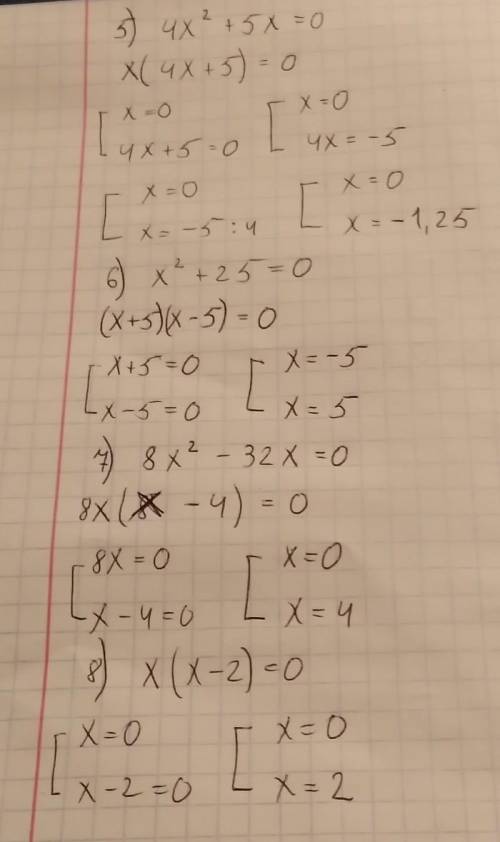 5) 4x² + 5x = 0
x(4x+5) = 0
[ x=0 [ x=0
4x+5=0 4x=-5
[ x=0 [ x=0
x=-5:4 x=-1,25
6) x² + 25 = 0
(x+5)(x-5) = 0
[ x+5=0 [ x=-5
x-5=0 x=5
7) 8x² - 32x = 0
8x(x - 4) = 0
[ 8x=0 [ x=0
x-4=0 x=4
8) x(x-2)=0
[ x=0 [ x=0
x-2=0 x=2